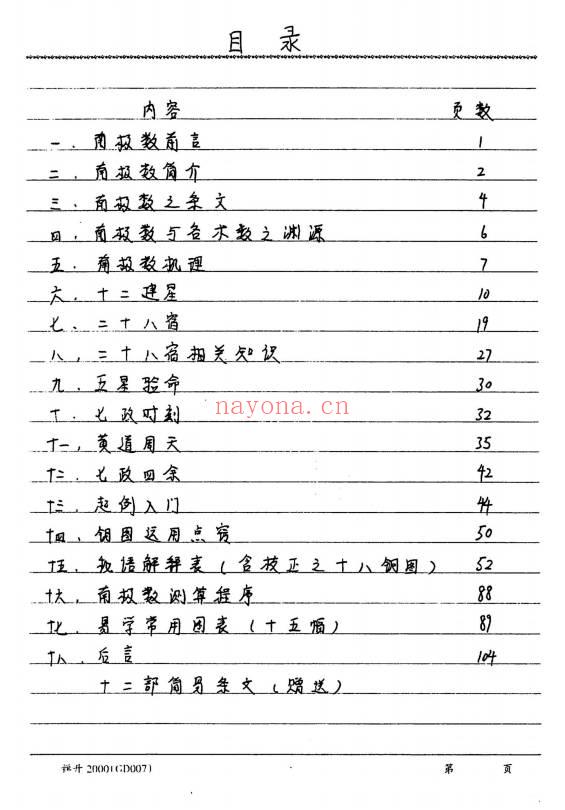 目录
内容 页数
一. 南极数前言 1
二. 南极数简介 2
三. 南极数之条文 4
四. 南极数与各术数之渊源 6
五. 南极数机理 7
六. 十二建星 10
七. 二十八宿 19
八, 二十八宿相关知识 27
九. 五星验命 30
十. 七政时刻 32
nayona.cn
十一, 黄道周天 35
十二. 七政四余 42
十三. 起例入门 44
十四. 钥图运用点窍 50
十五. 秘语解释表(含校正之十八钥图) 52
十六. 南极数测算程序 88
十七. 易学常用图表(十五幅) 89
十八. 后言 104
十二部简易条文(赠送)
20001(GD007) 第 页